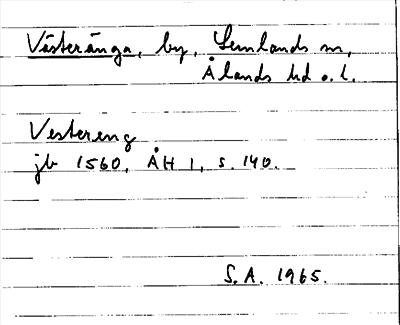 Västeränga, by, Lemlands sn,
Ålands hd o. l.
Vestereng
jb 1560, ÅH 1, s. 140.
S.A. 1965.